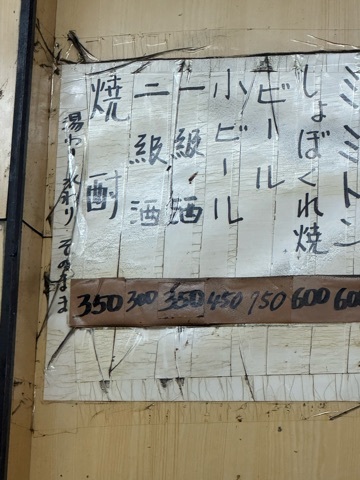 ミミトン
しょぼくれ焼
ビール
小ビール
一級酒
二級酒
焼酎
湯わり 水わり そのまま
350 300 350 450 750 600 60